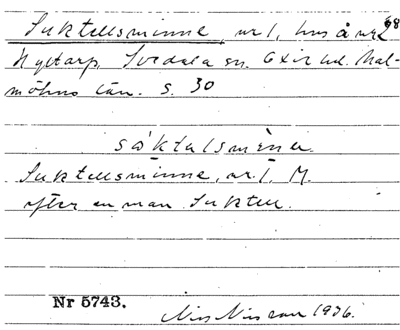 Suktellsminne, nr 1, hus å nr 2 68
Nyktorp, Svedala sn. Oxie hd. Mal-
möhus län. s. 30
Suktellsminne, nr. 1, M.
efter en man Suktell.
Nr 5743.
Nils Nilsson 1936.